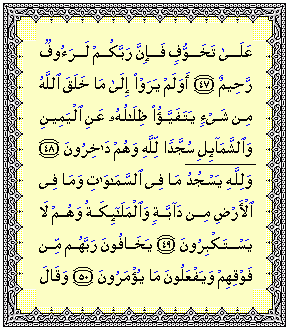 عَلَىٰ تَخَوُّفٍ فَإِنَّ رَبَّكُمْ لَرَءُوفٌ
رَّحِيمٌ ﴿٤٧﴾ أَوَلَمْ يَرَوْا۟ إِلَىٰ مَا خَلَقَ ٱللَّهُ
مِن شَىْءٍ يَتَفَيَّؤُا۟ ظِلَـٰلُهُۥ عَنِ ٱلْيَمِينِ
وَٱلشَّمَآئِلِ سُجَّدًا لِّلَّهِ وَهُمْ دَٰخِرُونَ ﴿٤٨﴾
وَلِلَّهِ يَسْجُدُ مَا فِى ٱلسَّمَـٰوَٰتِ وَمَا فِى
ٱلْأَرْضِ مِن دَآبَّةٍ وَٱلْمَلَـٰٓئِكَةُ وَهُمْ لَا
يَسْتَكْبِرُونَ ﴿٤٩﴾ يَخَافُونَ رَبَّهُم مِّن
فَوْقِهِمْ وَيَفْعَلُونَ مَا يُؤْمَرُونَ ﴿٥٠﴾ وَقَالَ